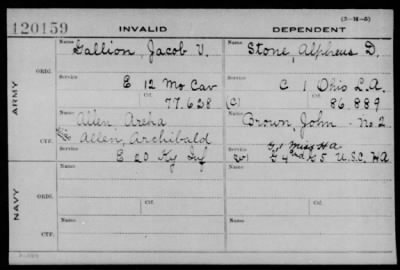 (3-H-5)
120159 INVALID DEPENDENT
Name Gallion, Jacob V. Name Stone, Alpheus D.
ORIG.
Service E 12 Mo Cav Service C 1 Ohio L.A.
Ctf. 77.628 (C) Ctf. 86.889
ARMY
Name Allen Name Brown, John No. 2
CTF. Allen, Archibald
Service E 20 Ky Inf G 4 and G 5 U.S.C. HA
Name Name
ORIG.
Service Service
Ctf. Ctf.
NAVY
Name Name
CTF.
Service Service